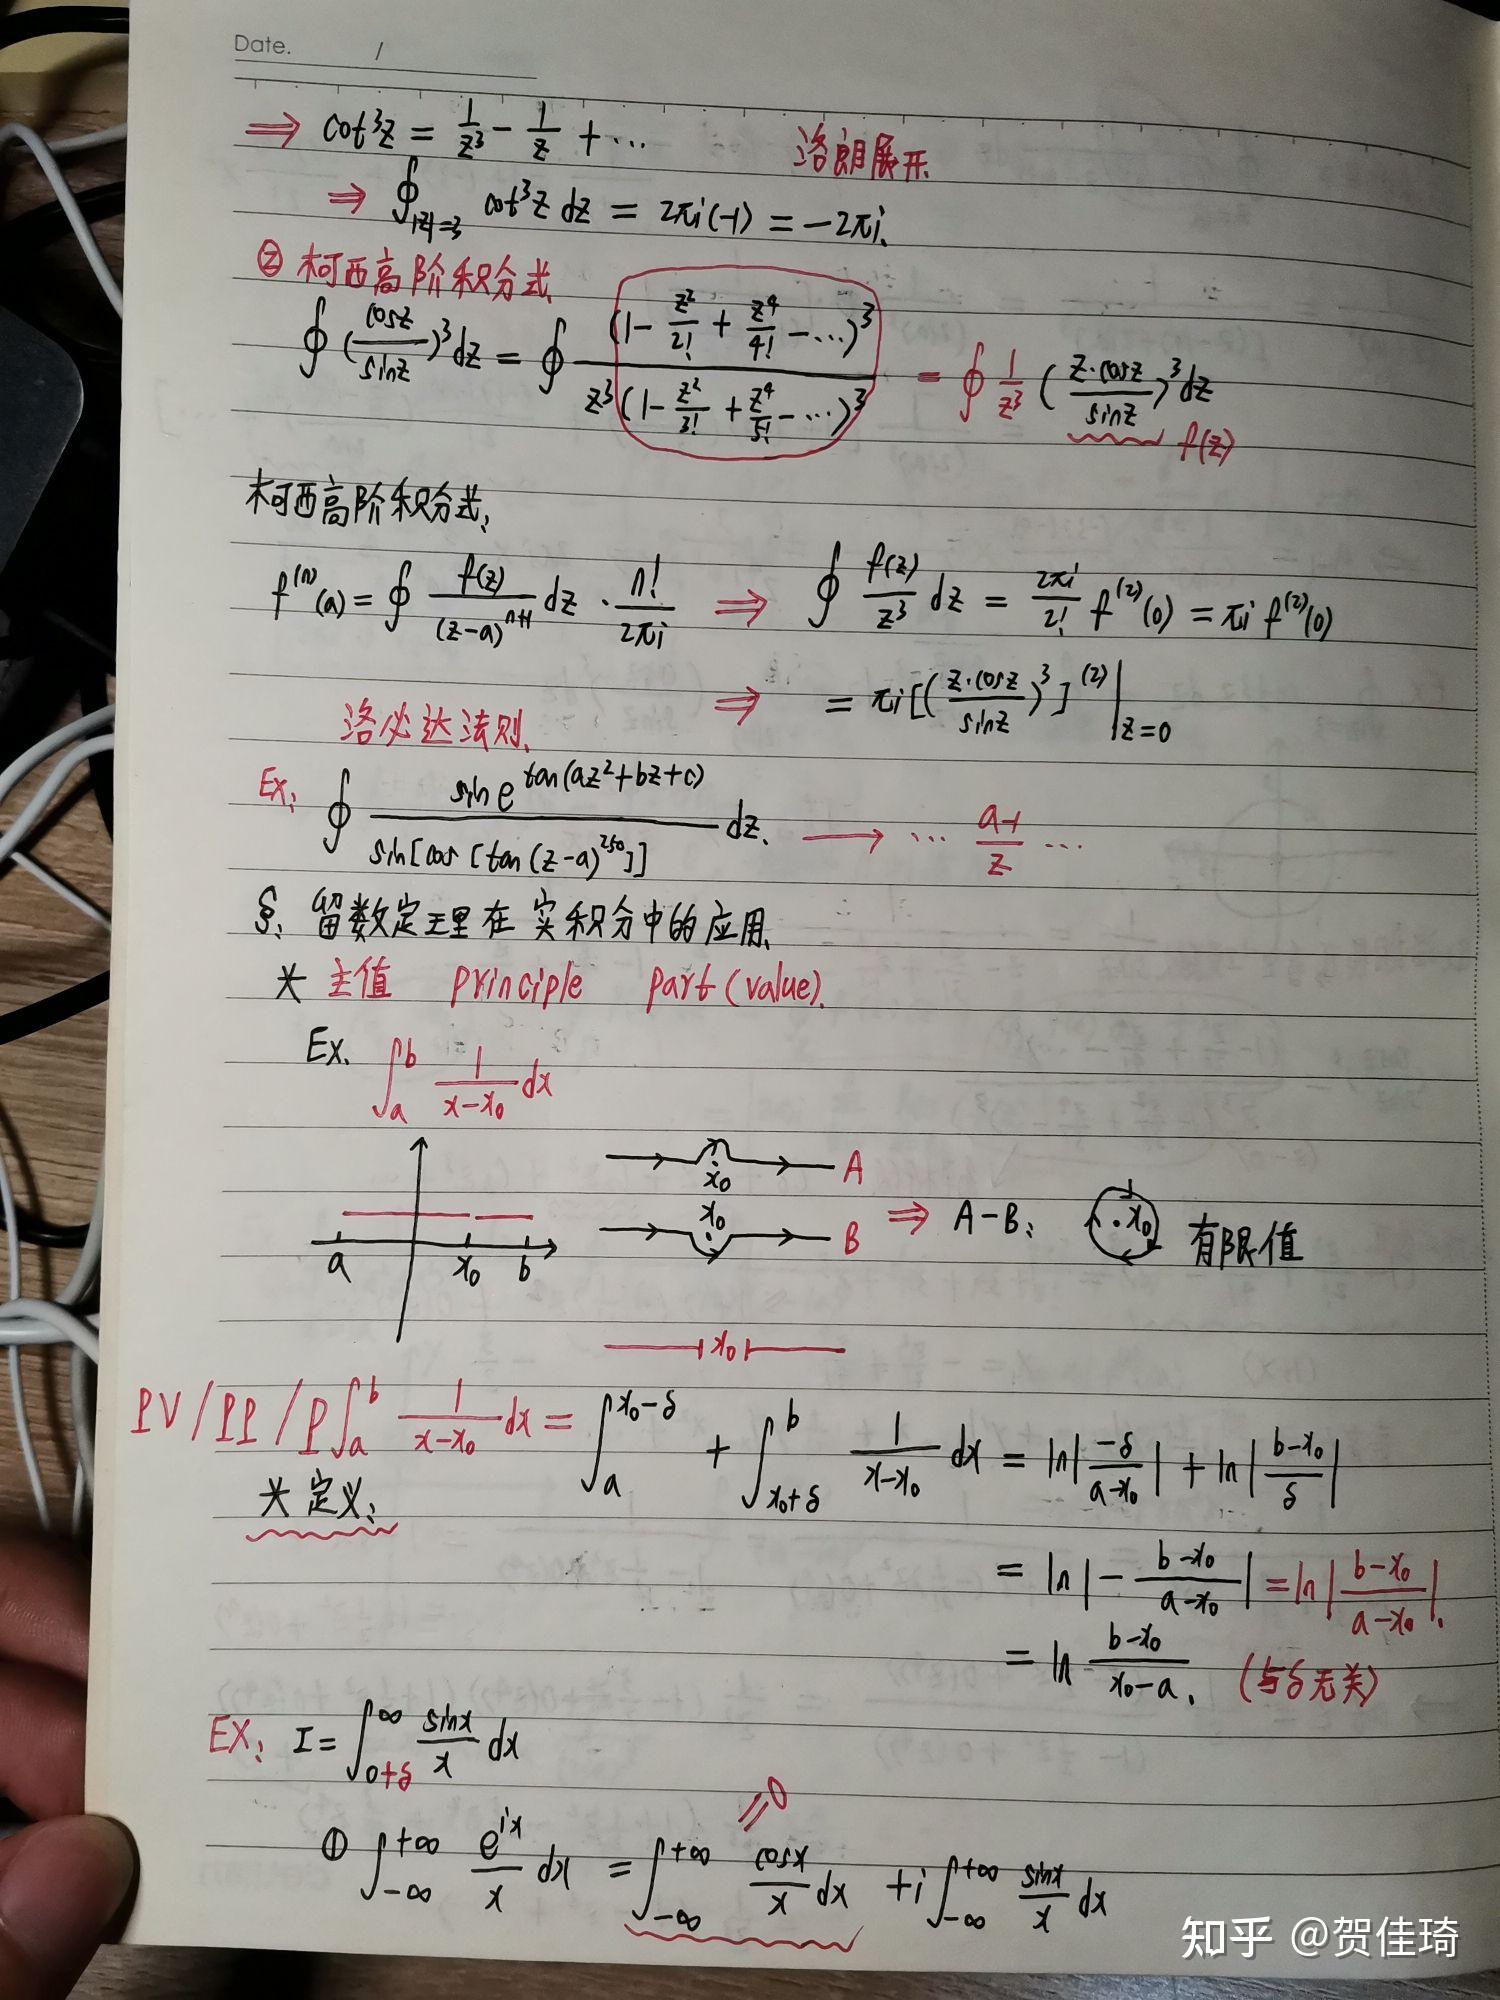 Date. /
⇒ cot³z = 1/z³ - 1/z + ⋯ 洛朗展开
⇒ ∮_{|z|=3} cot³z dz = 2πi(-1) = -2πi.
② 柯西高阶积分式
∮ (cosz/sinz)³ dz = ∮ (1 - z²/2! + z⁴/4! - ⋯)³ / z³(1 - z²/3! + z⁴/5! - ⋯)³ = ∮ 1/z³ (z·cosz/sinz)³ dz f(z)
柯西高阶积分式:
f⁽ⁿ⁾(a) = ∮ f(z)/(z-a)ⁿ⁺¹ dz · n!/2πi ⇒ ∮ f(z)/z³ dz = 2πi/2! f⁽²⁾(0) = πi f⁽²⁾(0)
⇒ = πi[(z·cosz/sinz)³]⁽²⁾|_{z=0}
洛必达法则.
Ex: ∮ sin e^{tan(az²+bz+c)} / sin[cos[tan(z-a)²⁵⁰]] dz. → ⋯ a₋₁/z ⋯
§: 留数定理在实积分中的应用.
* 主值 principle part (value).
Ex. ∫_a^b 1/(x-x₀) dx
x₀ A
a x₀ b x₀ B ⇒ A-B: ·x₀ 有限值
x₀
PV/PP/P∫_a^b 1/(x-x₀) dx = ∫_a^{x₀-δ} + ∫_{x₀+δ}^b 1/(x-x₀) dx = ln|-δ/(a-x₀)| + ln|(b-x₀)/δ|
* 定义:
= ln|- (b-x₀)/(a-x₀)| = ln|(b-x₀)/(a-x₀)|.
= ln (b-x₀)/(x₀-a). (与δ无关)
EX: I = ∫_{0+δ}^∞ sinx/x dx
=0
① ∫_{-∞}^{+∞} e^{ix}/x dx = ∫_{-∞}^{+∞} cosx/x dx + i∫_{-∞}^{+∞} sinx/x dx
知乎 @贺佳琦